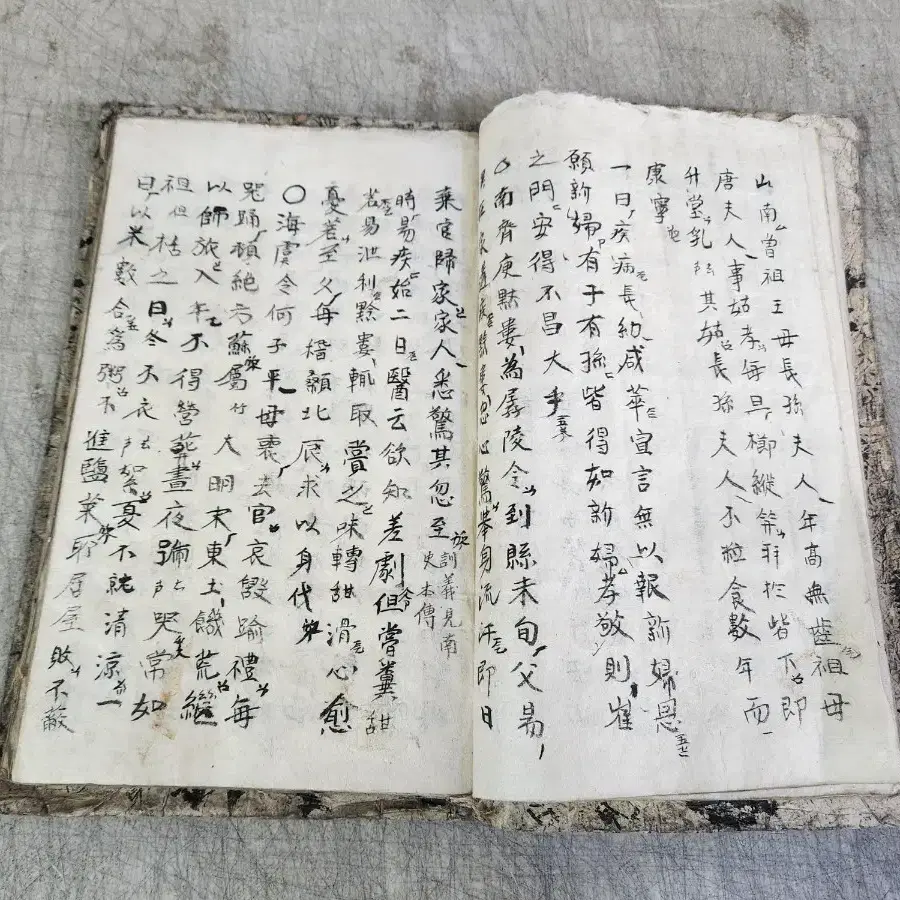 山南曾祖王母長孫夫人年高無齒祖母
唐夫人事姑孝每旦櫛縰笄拜於階下即
升堂乳其姑長孫夫人不粒食數年而
康寧也
一日疾病長幼咸華宣言無以報新婦恩
願新婦有子有孫皆得如新婦孝敬則崔
之門安得不昌大乎
○南齊庾黔婁爲孱陵令到縣未旬父易
家遘疾黔婁忽心驚擧身流汗即日
棄官歸家家人悉驚其忽至訓義見南
史本傳
時易疾始二日醫云欲知差劇但嘗糞甜
苦易泄利黔婁輒取嘗之味轉甜滑心愈
憂苦至夕每稽顙北辰求以身代
○海虞令何子平母喪去官哀毁踰禮每
哭踊頓絶方蘇屬大明末東土饑荒繼
以師旅八年不得營葬晝夜號哭常如
祖但枯之日冬不衣絮夏不就清凉一
日以米數合爲粥不進鹽菜所居屋敗不蔽